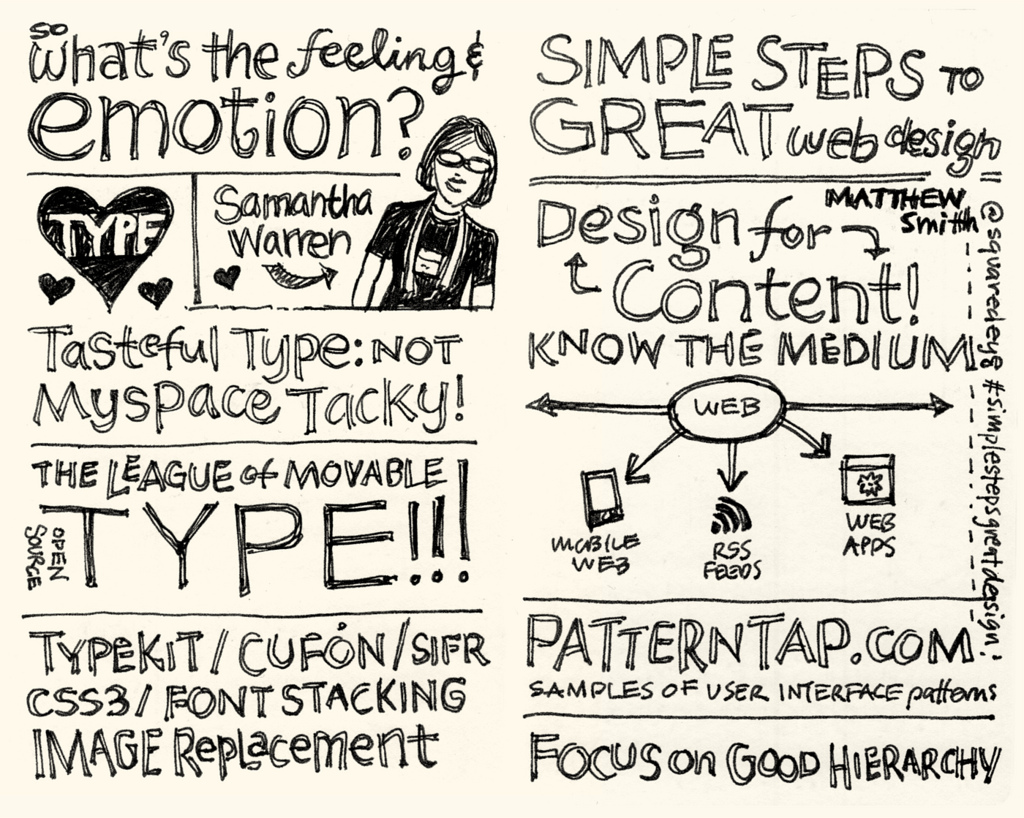 so
what's the feeling &
emotion?
TYPE
Samantha
Warren
Tasteful Type: NOT
Myspace Tacky!
THE LEAGUE of MOVABLE
TYPE!!!
OPEN
SOURCE
TYPEKIT / CUFÓN / SIFR
CSS3 / FONT STACKING
IMAGE Replacement
SIMPLE STEPS TO
GREAT web design
MATTHEW
Smith
Design for
Content!
KNOW THE MEDIUM
WEB
MOBILE
WEB
RSS
FEEDS
WEB
APPS
@squaredeye #simplestepsgreatdesign
PATTERNTAP.COM
SAMPLES OF USER INTERFACE patterns
FOCUS on GOOD HIERARCHY